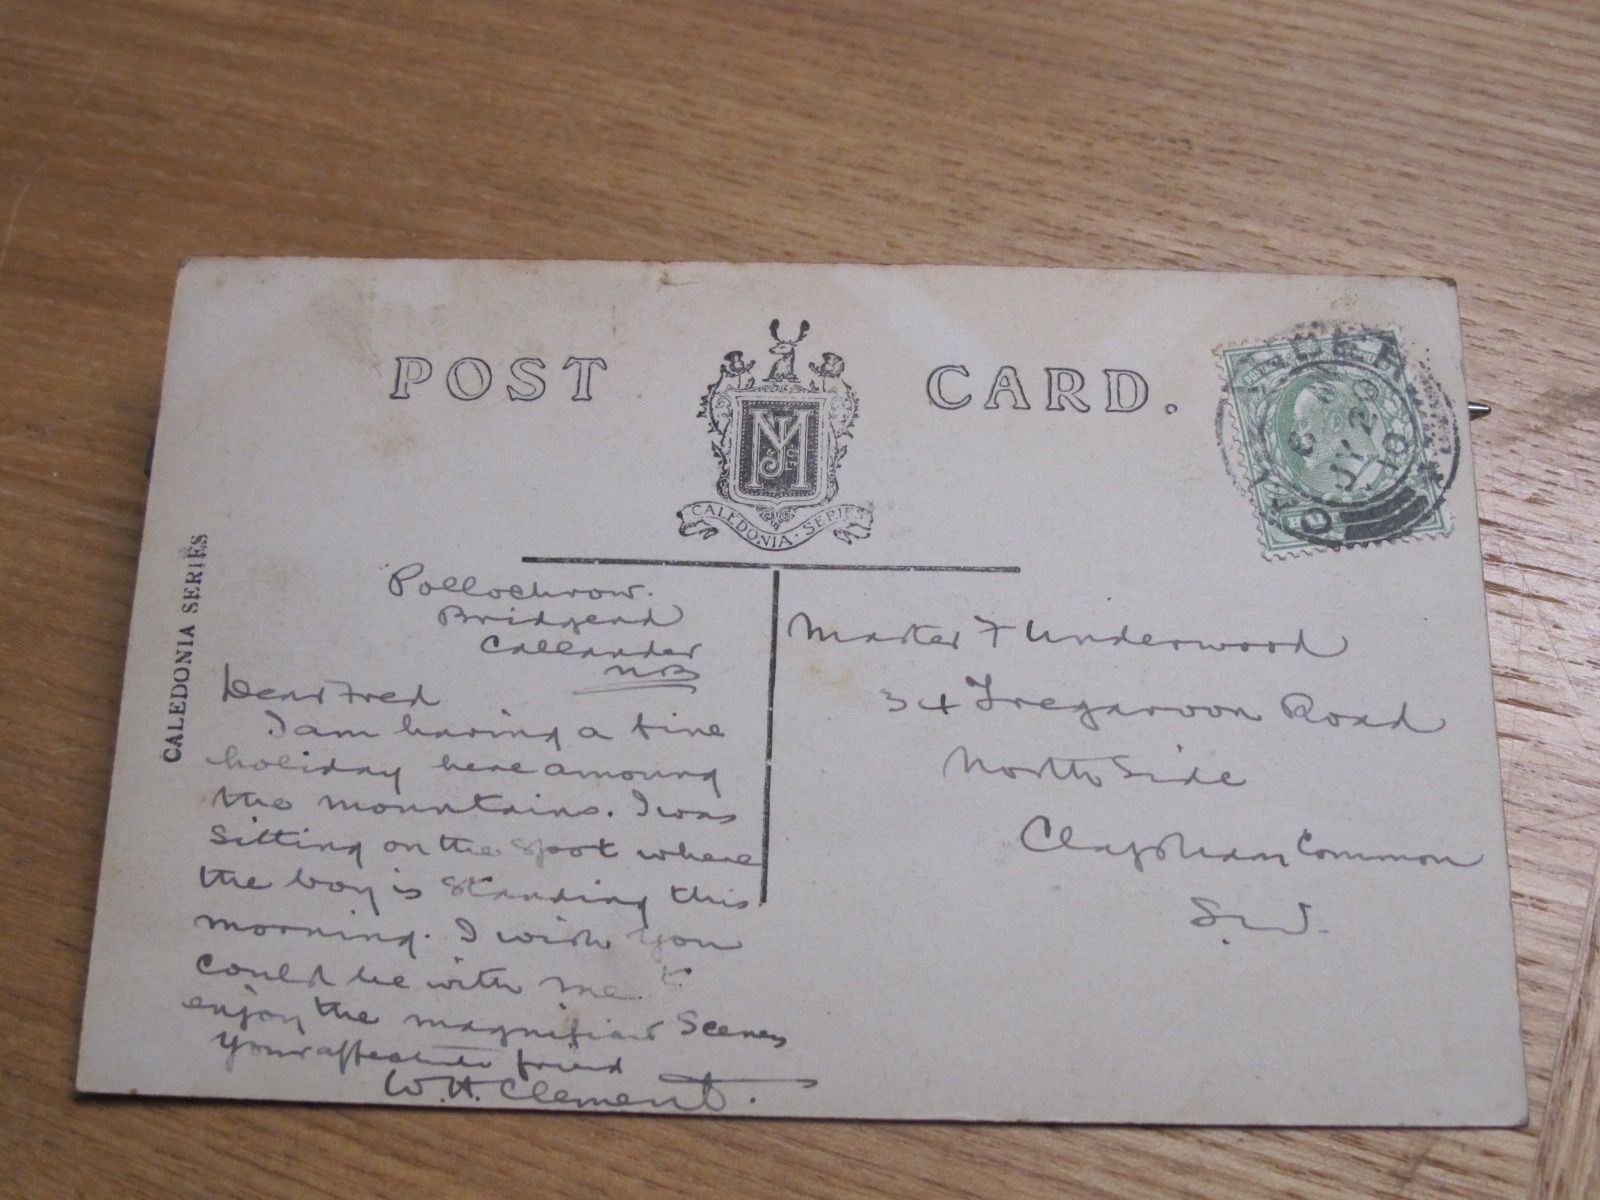 POST CARD.
CALEDONIA · SERIES
CALEDONIA SERIES
JY 20
10
Pollochrow.
Bridgend
Callander
NB
Dear Fred
I am having a fine
holiday here amoung
the mountains. I was
sitting on the spot where
the boy is standing this
morning. I wish you
could be with me to
enjoy the magnificent Scenery
Your affectionate friend
W. H. Clement.
Master F Underwood
34 Tregarvon Road
North Side
Clapham Common
S.W.